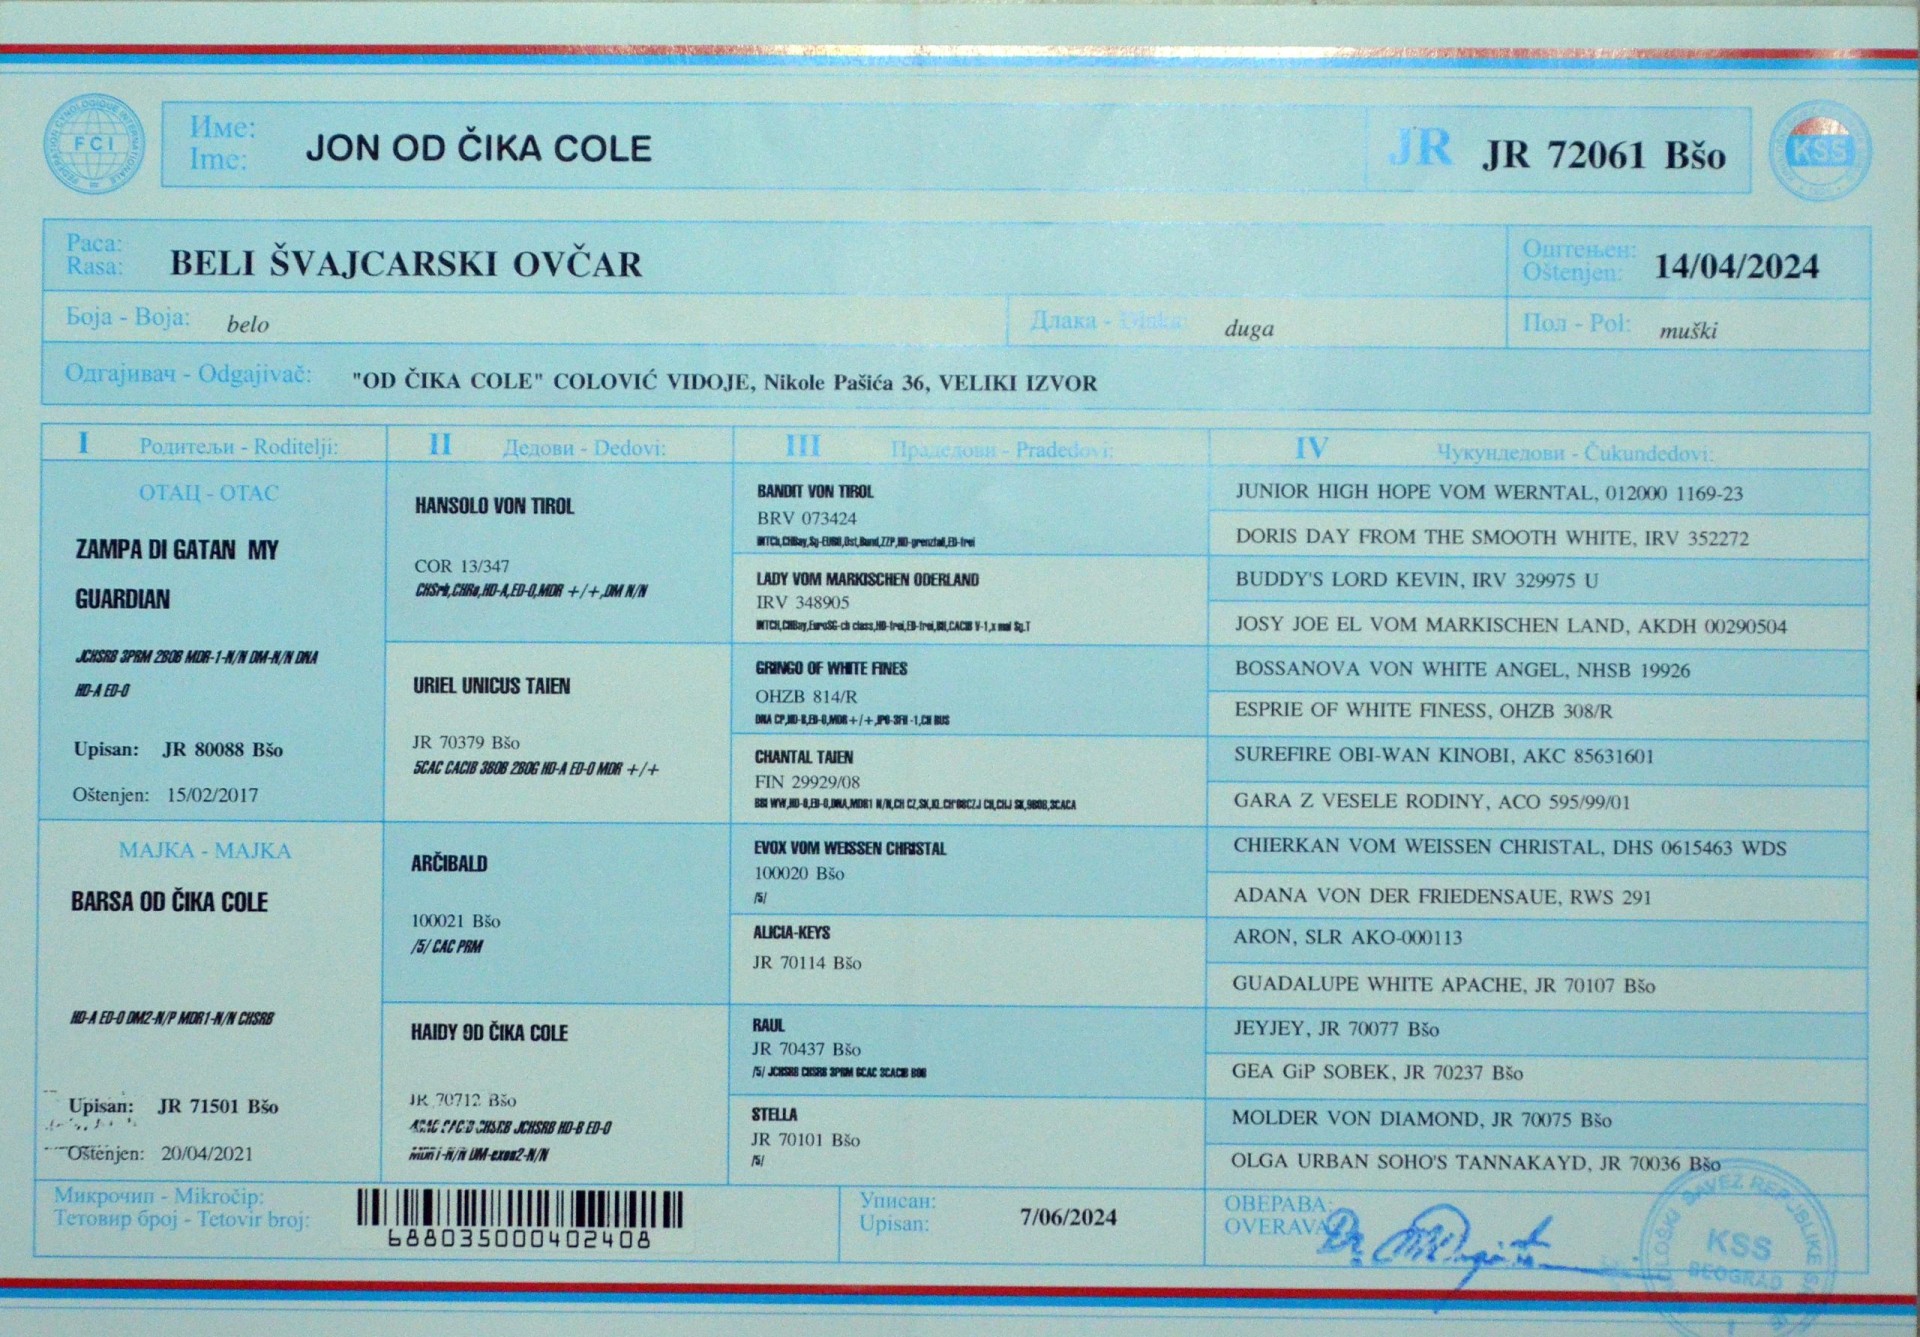 FCI
Име:
Ime:
JON OD ČIKA COLE
JR
JR 72061 Bšo
KSS
Раса:
Rasa:
BELI ŠVAJCARSKI OVČAR
Оштењен:
Oštenjen:
14/04/2024
Боја - Boja:
belo
Длака - Dlaka:
duga
Пол - Pol:
muški
Одгајивач - Odgajivač:
"OD ČIKA COLE" COLOVIĆ VIDOJE, Nikole Pašića 36, VELIKI IZVOR
I
Родитељи - Roditelji:
II
Дедови - Dedovi:
III
Прадедови - Pradedovi:
IV
Чукундедови - Čukundedovi:
ОТАЦ - OTAC
ZAMPA DI GATAN MY
GUARDIAN
JCHSRB 3PRM 2BOB MDR-1-N/N DM-N/N DNA
HD-A ED-0
Upisan: JR 80088 Bšo
Oštenjen: 15/02/2017
МАЈКА - MAJKA
BARSA OD ČIKA COLE
HD-A ED-0 DM2-N/P MDR1-N/N CHSRB
Upisan: JR 71501 Bšo
Oštenjen: 20/04/2021
HANSOLO VON TIROL
COR 13/347
CHSrb,CHRo,HD-A,ED-0,MDR +/+,DM N/N
URIEL UNICUS TAIEN
JR 70379 Bšo
5CAC CACIB 3BOB 2BOG HD-A ED-0 MDR +/+
ARČIBALD
100021 Bšo
/5/ CAC PRM
HAIDY OD ČIKA COLE
JR 70712 Bšo
CHSRB JCHSRB HD-B ED-0
MDR1-N/N DM-exon2-N/N
BANDIT VON TIROL
BRV 073424
HD-grenzfall,ED-frei
LADY VOM MARKISCHEN ODERLAND
IRV 348905
HD-frei,ED-frei
GRINGO OF WHITE FINES
OHZB 814/R
DNA CP,HD-B,ED-0,MDR+/+
CHANTAL TAIEN
FIN 29929/08
EVOX VOM WEISSEN CHRISTAL
100020 Bšo
/5/
ALICIA-KEYS
JR 70114 Bšo
RAUL
JR 70437 Bšo
/5/ JCHSRB CHSRB 3PRM 6CAC 3CACIB BOB
STELLA
JR 70101 Bšo
/5/
JUNIOR HIGH HOPE VOM WERNTAL, 012000 1169-23
DORIS DAY FROM THE SMOOTH WHITE, IRV 352272
BUDDY'S LORD KEVIN, IRV 329975 U
JOSY JOE EL VOM MARKISCHEN LAND, AKDH 00290504
BOSSANOVA VON WHITE ANGEL, NHSB 19926
ESPRIE OF WHITE FINESS, OHZB 308/R
SUREFIRE OBI-WAN KINOBI, AKC 85631601
GARA Z VESELE RODINY, ACO 595/99/01
CHIERKAN VOM WEISSEN CHRISTAL, DHS 0615463 WDS
ADANA VON DER FRIEDENSAUE, RWS 291
ARON, SLR AKO-000113
GUADALUPE WHITE APACHE, JR 70107 Bšo
JEYJEY, JR 70077 Bšo
GEA GiP SOBEK, JR 70237 Bšo
MOLDER VON DIAMOND, JR 70075 Bšo
OLGA URBAN SOHO'S TANNAKAYD, JR 70036 Bšo
Микрочип - Mikročip:
Тетовир број - Tetovir broj:
688035000402408
Уписан:
Upisan:
7/06/2024
ОВЕРАВА:
OVERAVA:
KSS
BEOGRAD